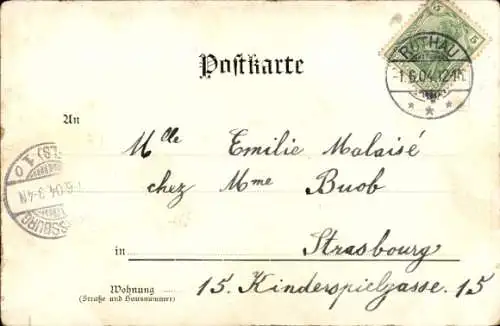 5 5
Postkarte
RUTHAU
-1.6.04.12-1N.
An
Mlle Emilie Malaisé
chez Mme Buob
6.04.3-4N
in Strasbourg
Wohnung 15. Kinderspielgasse. 15
(Straße und Hausnummer)